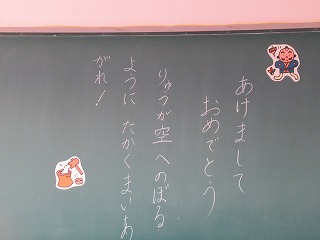 あけまして
おめでとう
りゅうが空へのぼる
ように たかくまいあ
がれ！